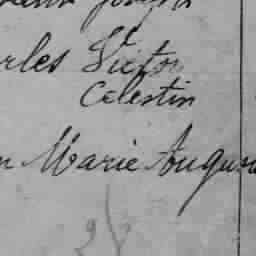 Joseph
rles Victor
Celestin
n Marie Augus
28